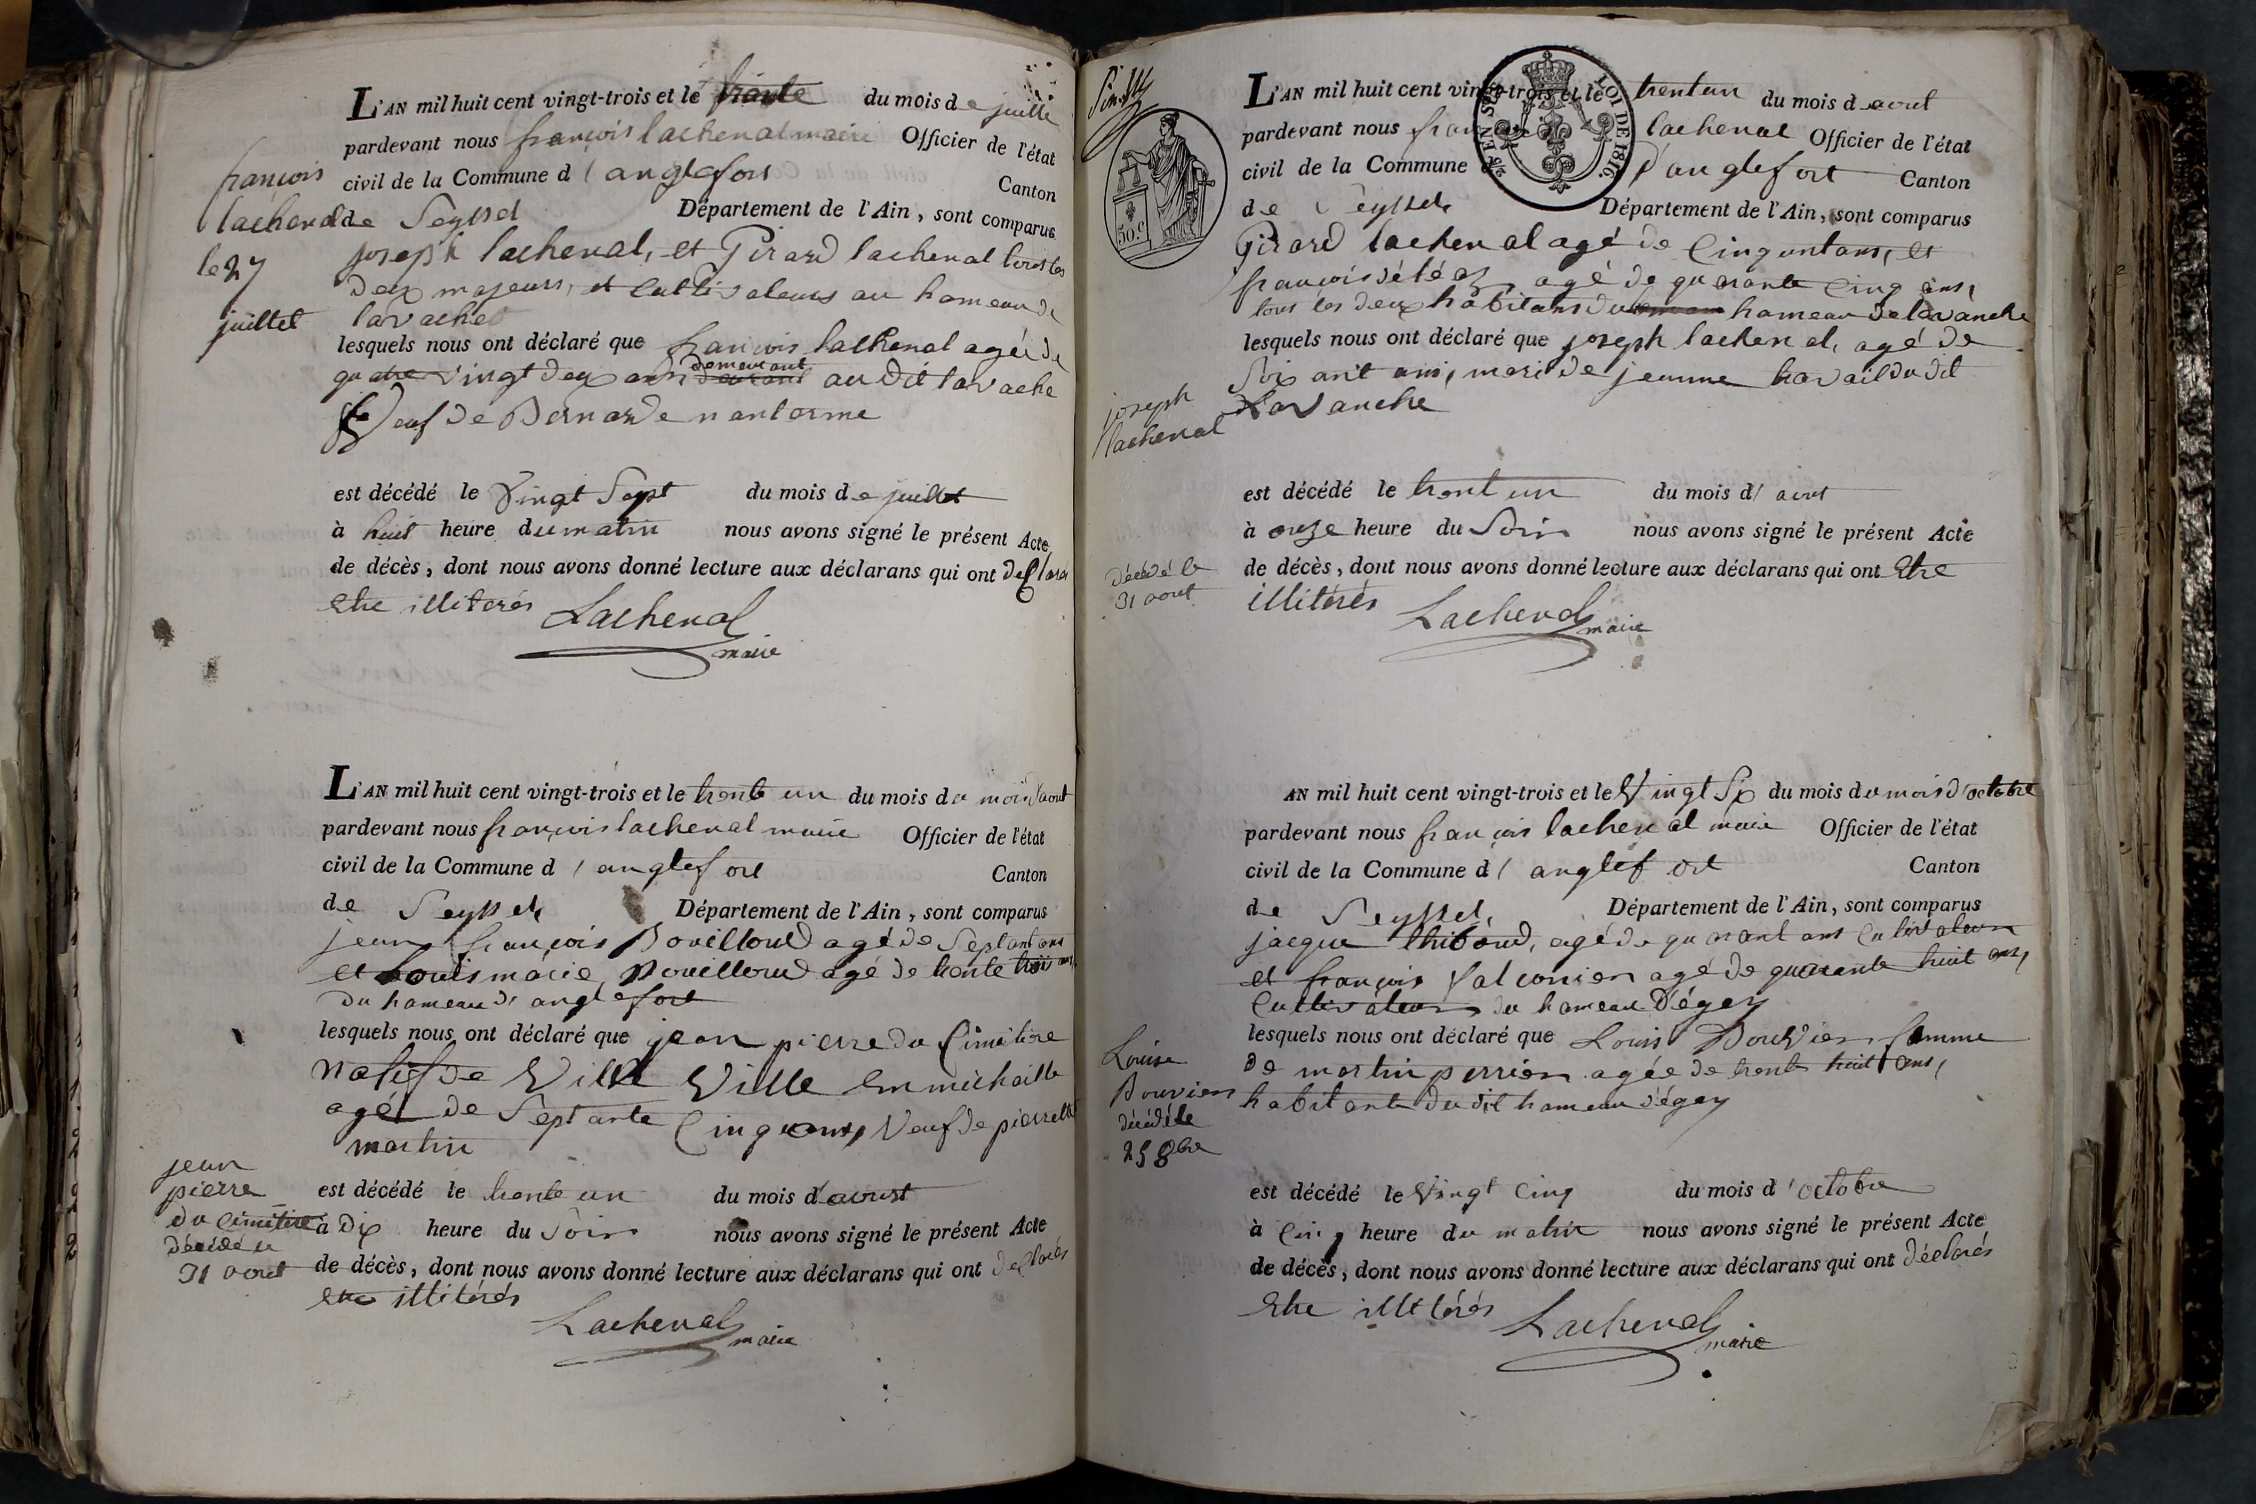 L'AN mil huit cent vingt-trois et le trante du mois de juille
pardevant nous françois lachenal maire Officier de l'état
civil de la Commune d'anglefort Canton
de Seyssel Département de l'Ain, sont comparus
joseph lachenal, et Girard lachenal tous les
deux majeurs, et cultivateurs au hameau de
lavache
lesquels nous ont déclaré que françois lachenal agée de
quatre vingt deux ans demeurant au dit lavache
Veuf de Bernarde nantorme
françois
lachenal
le 27
juillet
est décédé le vingt Sept du mois de juillet
à huit heure du matin nous avons signé le présent Acte
de décès, dont nous avons donné lecture aux déclarans qui ont
etre illiterés Lachenal
maire
L'AN mil huit cent vingt-trois et le trente un du mois du mois d'aout
pardevant nous françois lachenal maire Officier de l'état
civil de la Commune d'anglefort Canton
de Seyssel Département de l'Ain, sont comparus
jean françois Bouilloud agé de Septant ans
et Louis marie Bouilloud agé de trente trois ans
du hameau d'anglefort
lesquels nous ont déclaré que jean pierre du Cimetire
natif de Ville Ville en michaille
agé de Septante Cinq ans, Veuf de pierrette
martin
jean
pierre
du Cimetire
décédé le
31 aout
est décédé le trente un du mois d'aoust
à dix heure du Soir nous avons signé le présent Acte
de décès, dont nous avons donné lecture aux déclarans qui ont declarés
etre illiterés
Lachenal
maire
L'AN mil huit cent vingt-trois et le trentun du mois d'aout
pardevant nous lachenal Officier de l'état
civil de la Commune d'anglefort Canton
de Seyssel Département de l'Ain, sont comparus
Girard lachenal agé de Cinquantans, et
françois agé de quarante Cinq ans,
tous les deux habitans du hameau de lavanche
lesquels nous ont déclaré que joseph lachenal, agé de
Soixant ans, mari de jeanne travail du dit
Lavanche
EN SUS LOI DE 1816.
50.c
joseph
lachenal
décédé le
31 aout
est décédé le trent un du mois d'aout
à onze heure du Soir nous avons signé le présent Acte
de décès, dont nous avons donné lecture aux déclarans qui ont Etre
illitérés Lachenal
maire
AN mil huit cent vingt-trois et le Vingt Six du mois du mois d'octobre
pardevant nous françois lachenal maire Officier de l'état
civil de la Commune d'anglefort Canton
de Seyssel, Département de l'Ain, sont comparus
jacque thiboud, agé de quarant ans Cultivateur
et françois falconier agé de quarante huit ans,
Cultivateurs du hameau d'égey
lesquels nous ont déclaré que Louis Bouvier femme
de martin perrier agée de trente huit ans,
habitante du dit hameau d'égey
Louise
Bouvier
décédé le
25 8bre
est décédé le Vingt Cinq du mois d'octobre
à Cinq heure du matin nous avons signé le présent Acte
de décès, dont nous avons donné lecture aux déclarans qui ont déclarés
Etre illitérés Lachenal
maire